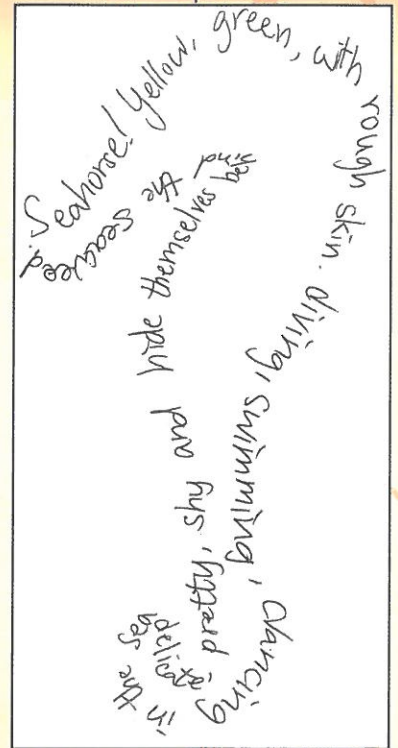 Seahorse! Yellow, green, with rough skin. diving, swimming, dancing in the sea delicate pretty, shy and hide themselves behind the seaweed.